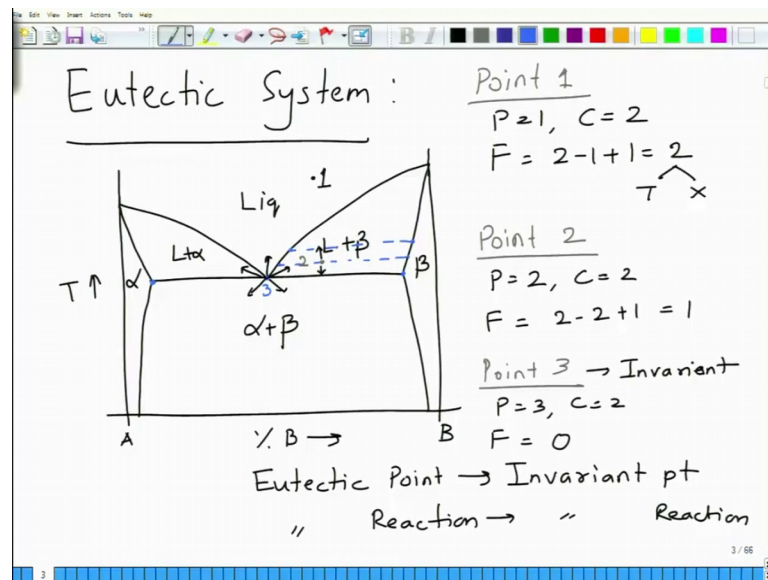 File Edit View Insert Actions Tools Help
B I
Eutectic System :
Point 1
P=1, C=2
F = 2-1+1 = 2
T X
Point 2
P=2, C=2
F = 2-2+1 = 1
Point 3 → Invarient
P=3, C=2
F = 0
·1
Liq
L+α
L+β
2
α
β
T ↑
3
α+β
A
% B →
B
Eutectic Point → Invariant pt
〃 Reaction → 〃 Reaction
3 / 66
3